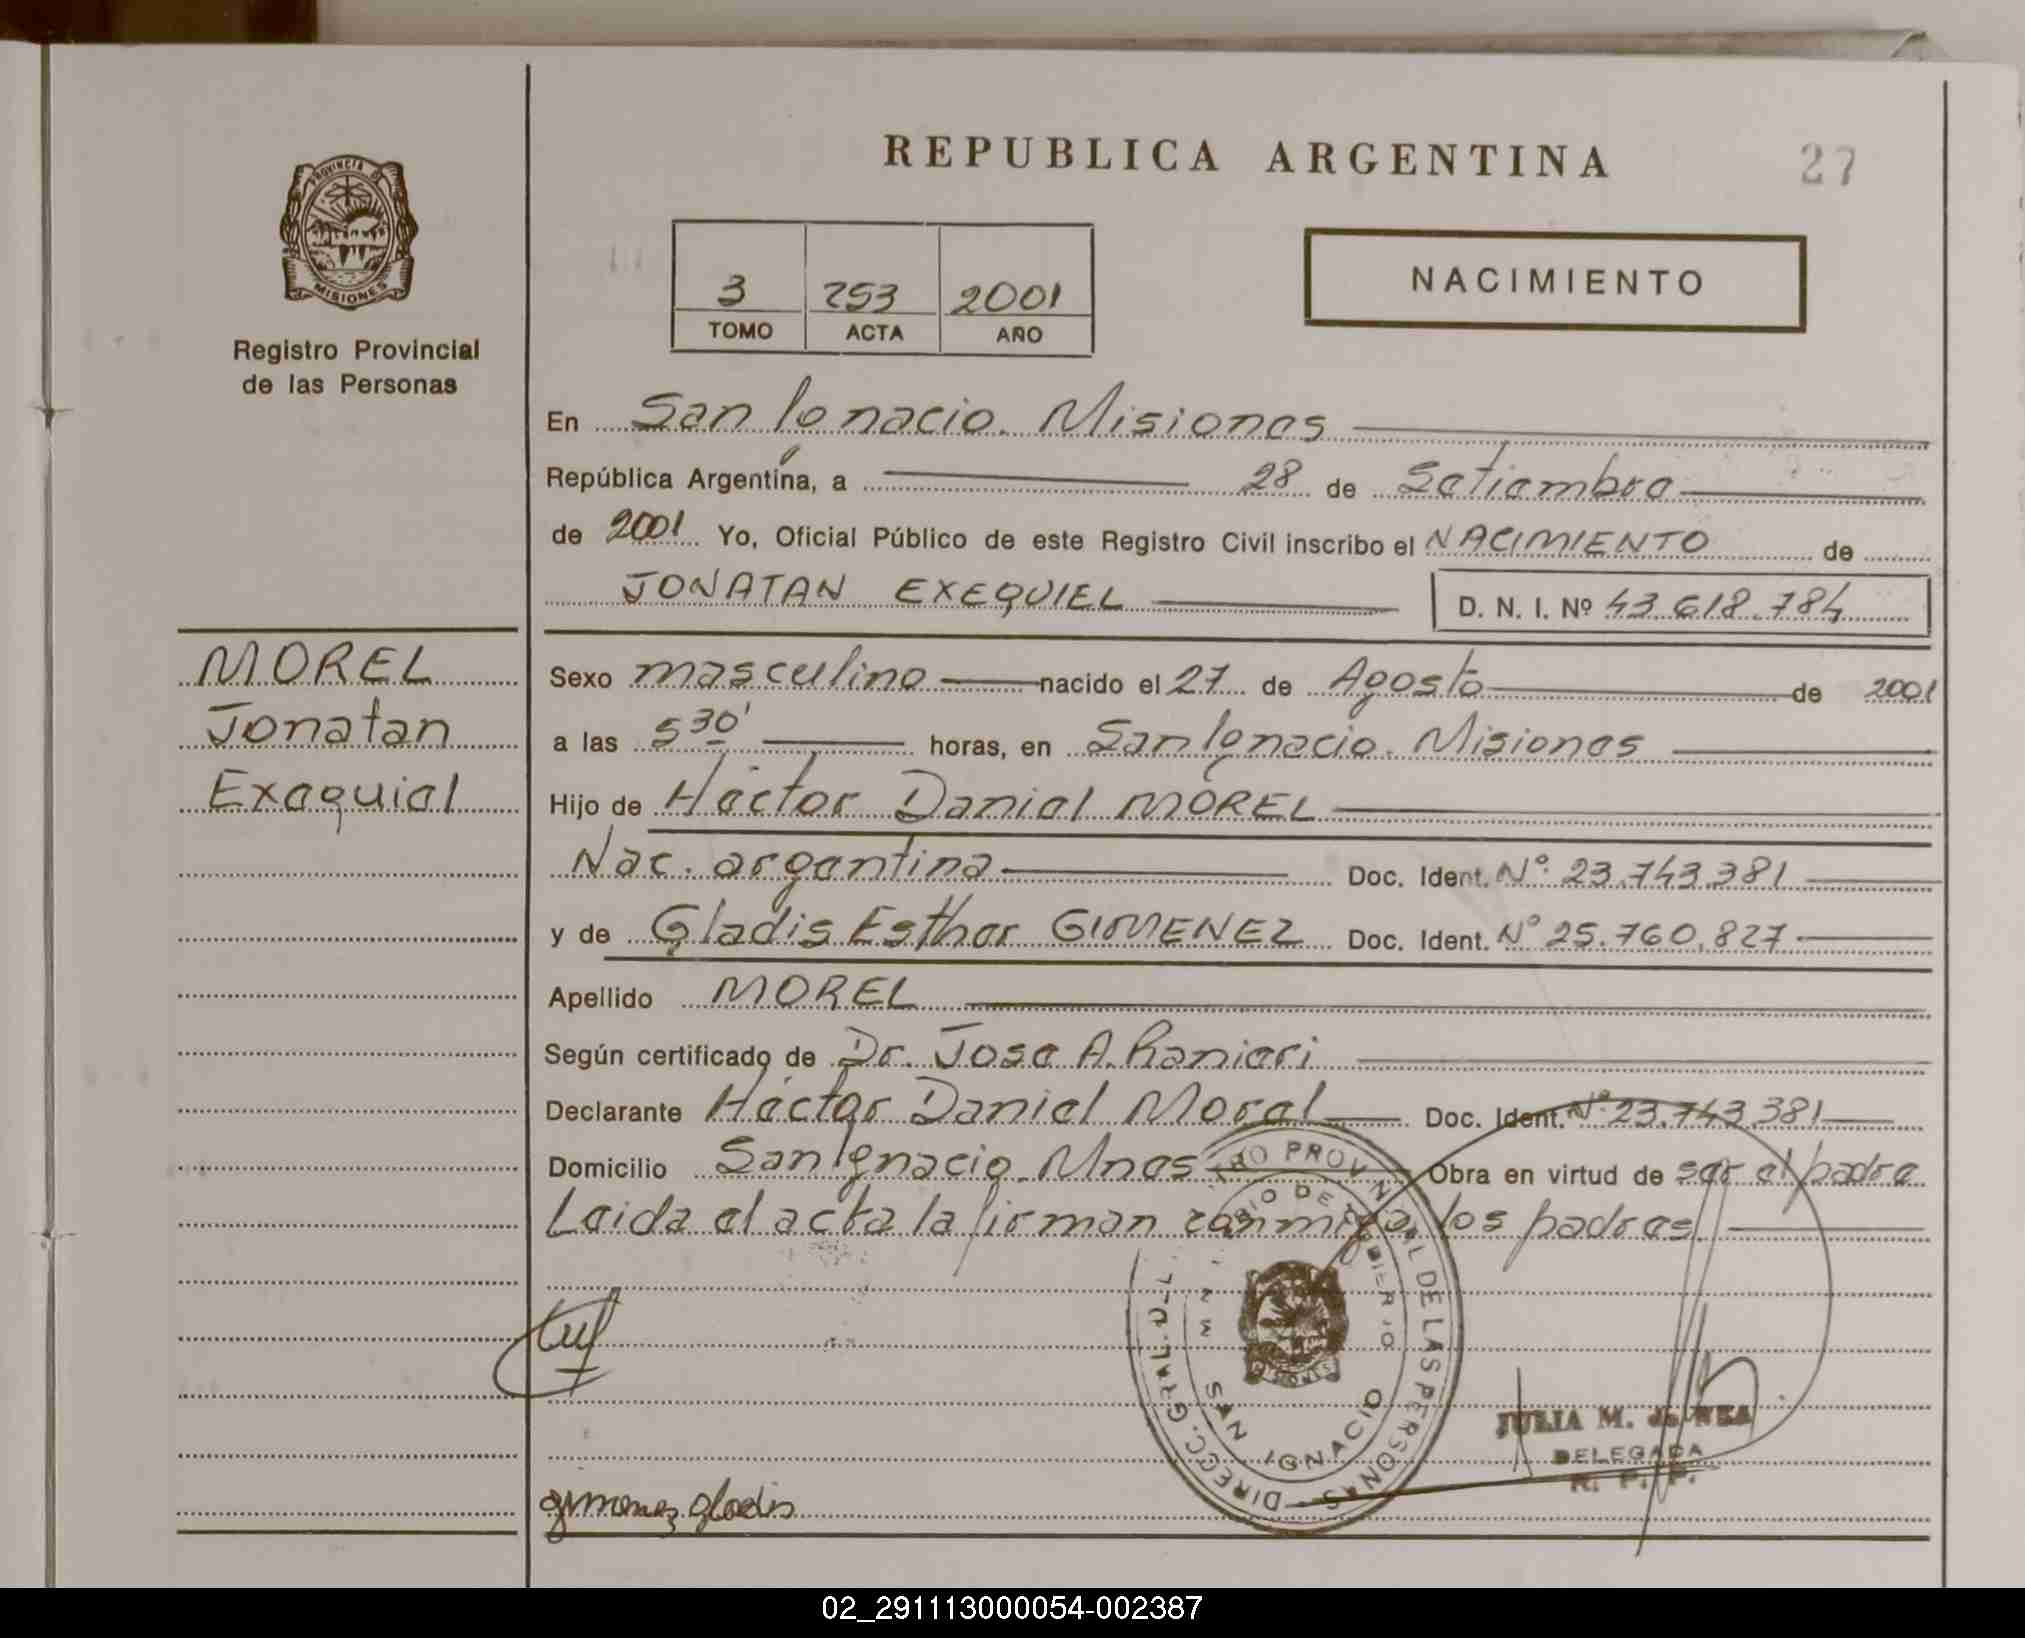 REPUBLICA ARGENTINA
27
PROVINCIA DE
MISIONES
Registro Provincial
de las Personas
3 253 2001
TOMO ACTA AÑO
NACIMIENTO
En San Ignacio. Misiones
República Argentina, a 28 de Setiembre
de 2001 Yo, Oficial Público de este Registro Civil inscribo el NACIMIENTO de
JONATAN EXEQUIEL D. N. I. Nº 43.618.784
MOREL
Jonatan
Exequiel
Sexo masculino nacido el 27 de Agosto de 2001
a las 5 30' horas, en San Ignacio. Misiones
Hijo de Héctor Daniel MOREL
Nac. argentina Doc. Ident. Nº 23.743.381
y de Gladis Esther GIMENEZ Doc. Ident. Nº 25.760.827
Apellido MOREL
Según certificado de Dr. Jose A. Ranieri
Declarante Héctor Daniel Morel Doc. Ident. Nº 23.743.381
Domicilio San Ignacio. Mnes Obra en virtud de ser el padre
Leida el acta la firman conmigo los padres.
DIRECC. GRAL. DE LAS PERSONAS
SAN IGNACIO
MISIONES
JULIA M.
DELEGADA
R. P. P.
gimenez gladis
02_291113000054-002387